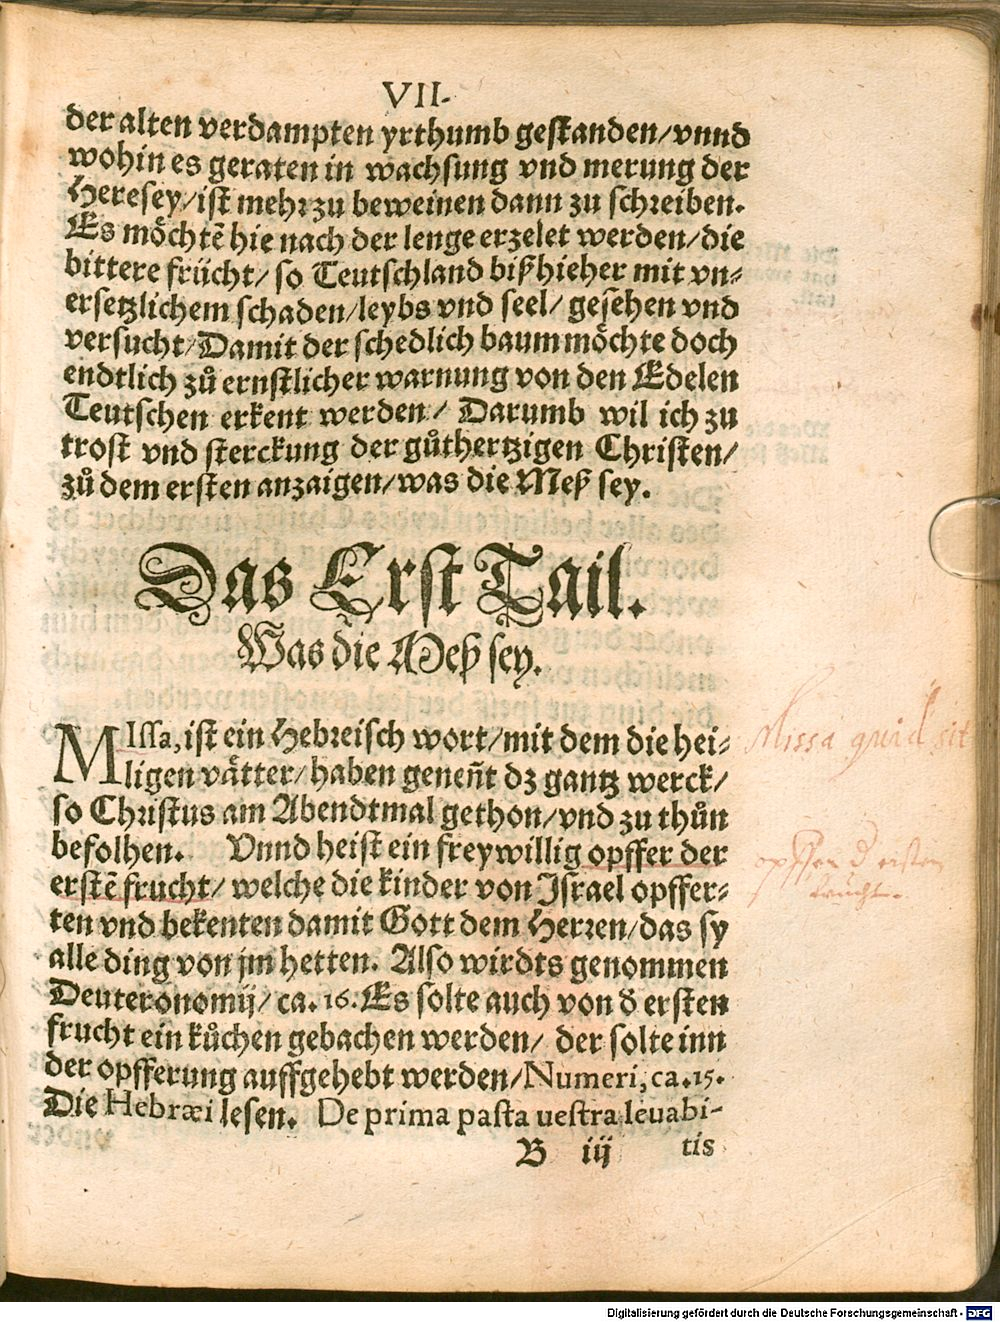 VII.
der alten verdampten yrthumb gestanden/vnnd
wohin es geraten in wachsung vnd merung der
Heresey/ist mehr zu beweinen dann zu schreiben.
Es möchtẽ hie nach der lenge erzelet werden/die
bittere frücht/ so Teutschland bißhieher mit vn⸗
ersetzlichem schaden/leybs vnd seel/ gesehen vnd
versucht/Damit der schedlich baum möchte doch
endtlich zů ernstlicher warnung von den Edelen
Teutschen erkent werden/ Darumb wil ich zu
trost vnd sterckung der gůthertzigen Christen/
zů dem ersten anzaigen/was die Meß sey.
Das Erst Tail.
Was die Meß sey.
MIssa, ist ein Hebreisch wort/mit dem die hei⸗
ligen vätter/haben geneñt dz gantz werck/
so Christus am Abendtmal gethon/vnd zu thůn
befolhen. Vnnd heist ein freywillig opffer der
erstẽ frucht/ welche die kinder von Israel opffer⸗
ten vnd bekenten damit Gott dem Herren/das sy
alle ding von jm hetten. Also wirdts genommen
Deuteronomij/ ca. 16. Es solte auch von đ ersten
frucht ein kůchen gebachen werden/ der solte inn
der opfferung auffgehebt werden/Numeri, ca. 15.
Die Hebræi lesen. De prima pasta uestra leuabi-
B iij tis
Missa quid sit
opffer d ersten
frucht.
Digitalisierung gefördert durch die Deutsche Forschungsgemeinschaft - DFG